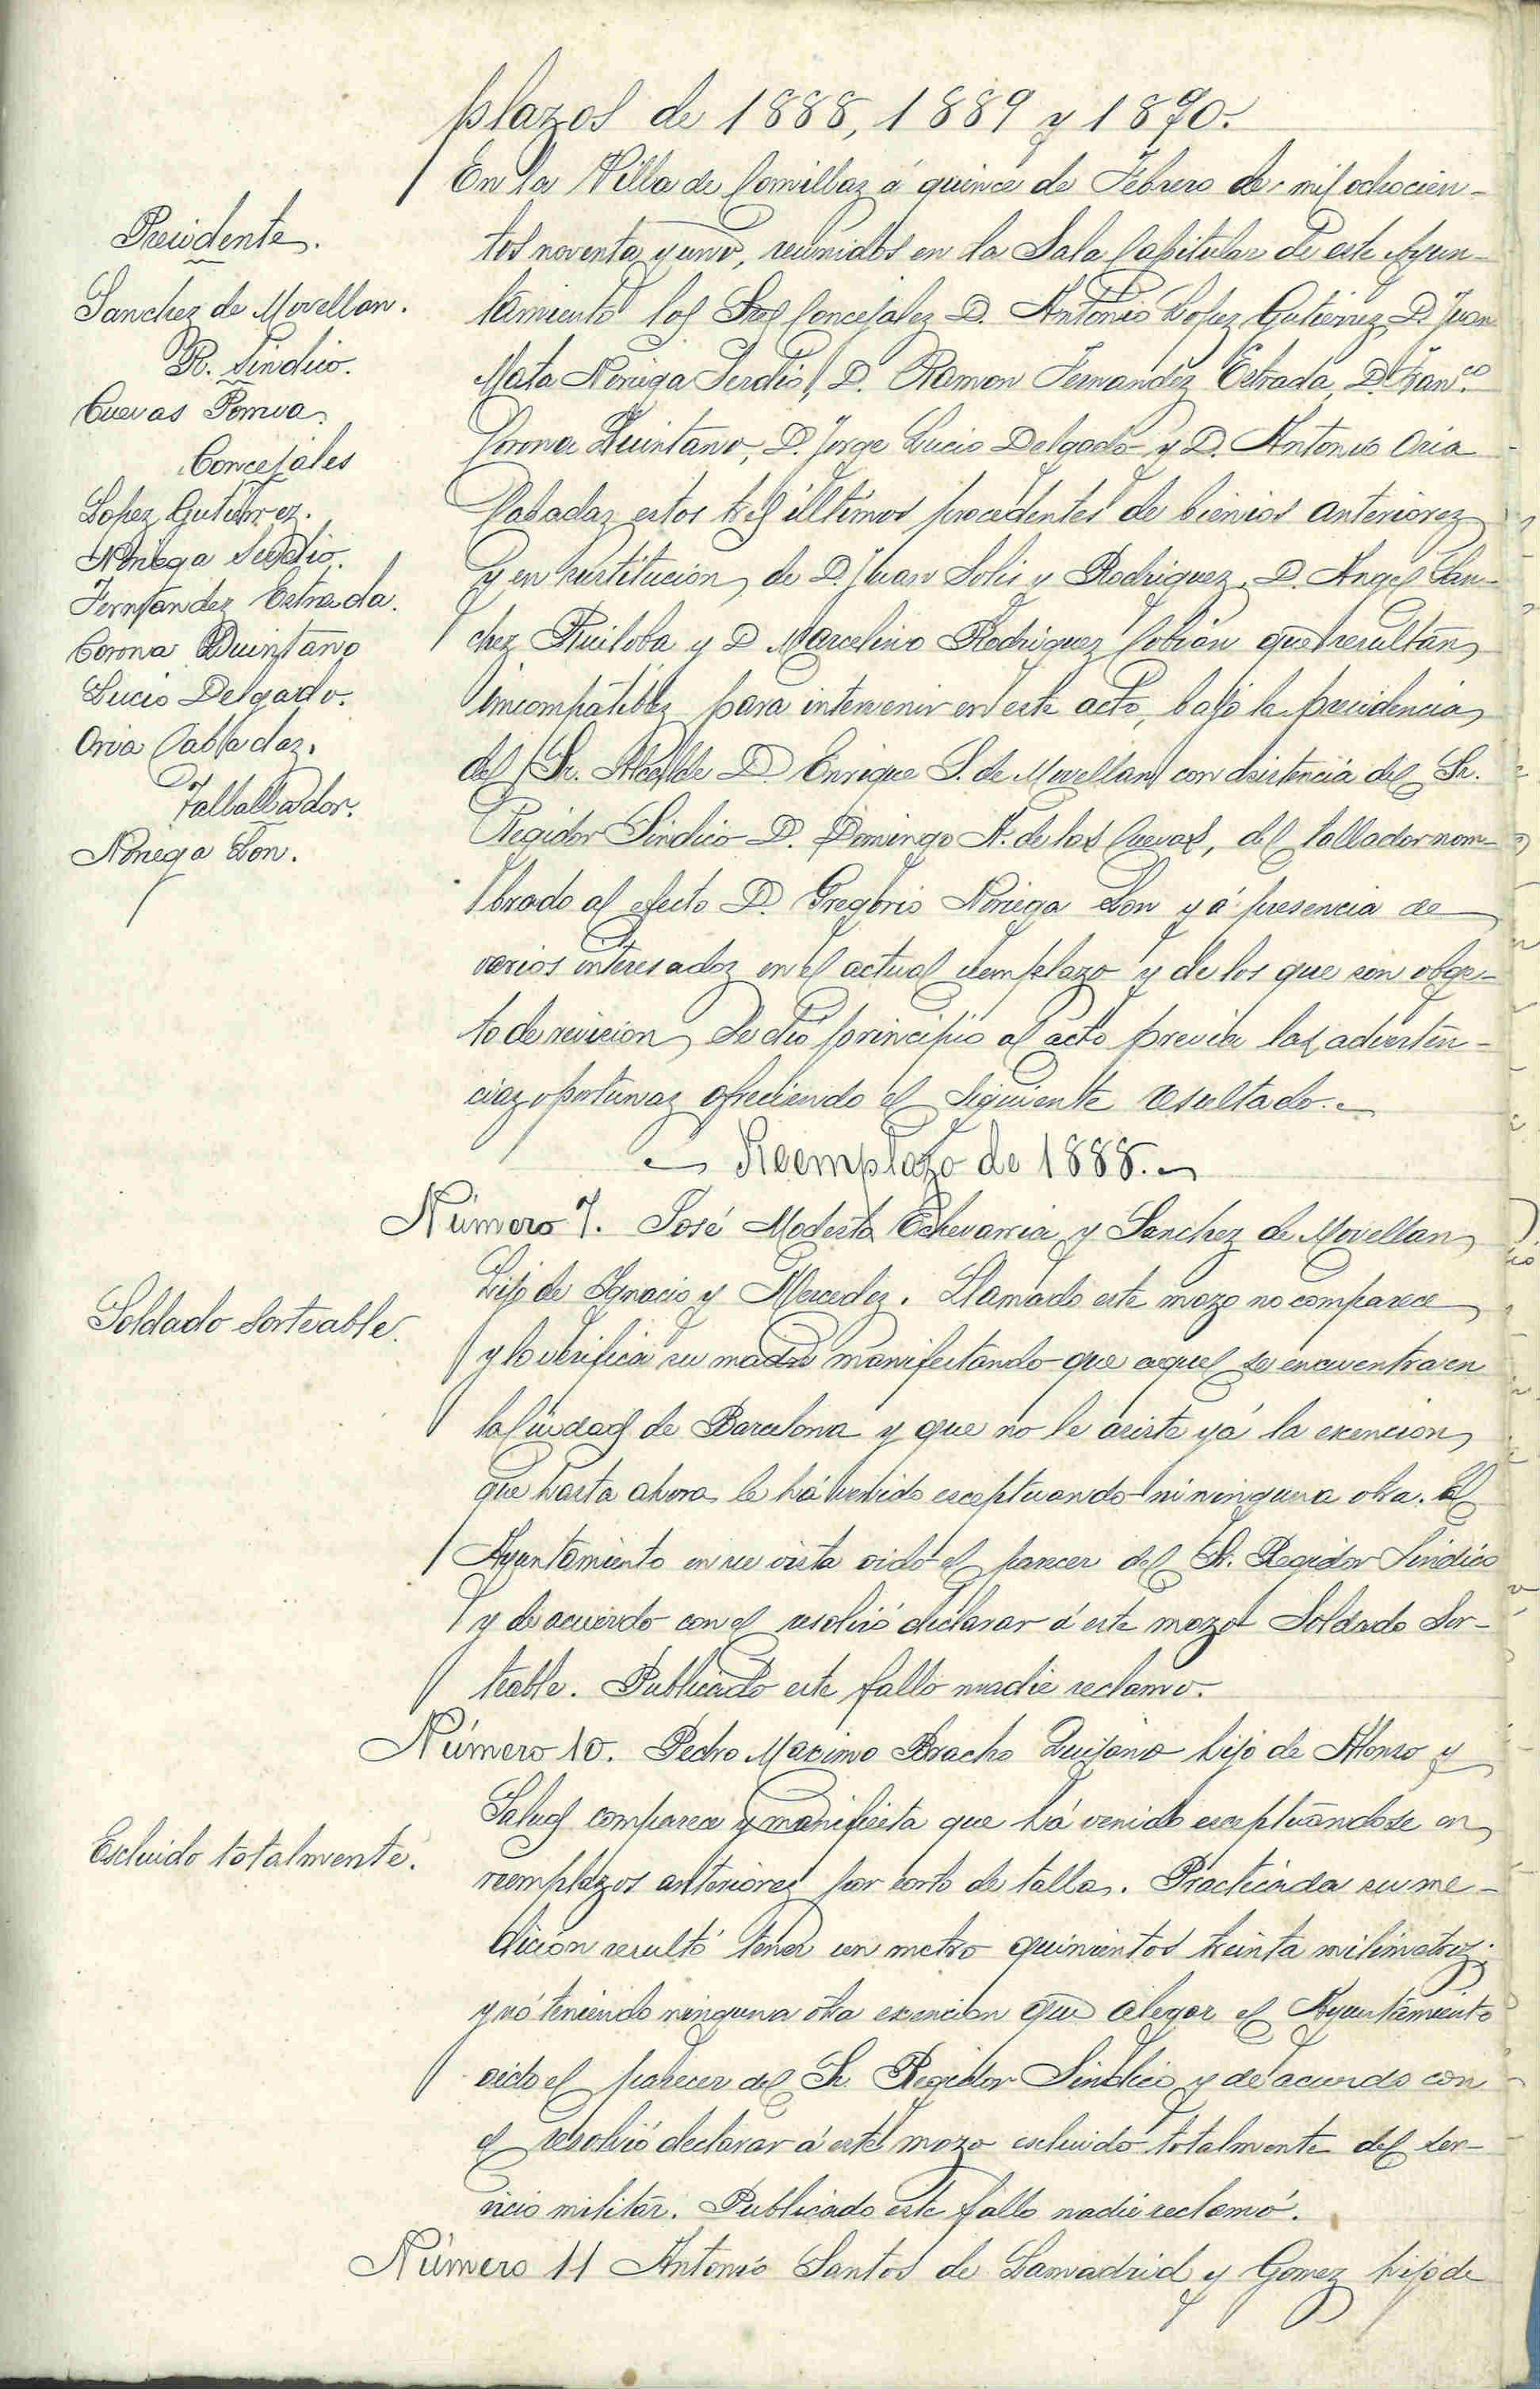 plazos de 1888, 1889 y 1890.
En la Villa de Comillas á quince de Febrero de mil ochocien-
tos noventa y uno, reunidos en la Sala Capitular de este Ayun-
tamiento los Sres Concejales D. Antonio Lopez Gutierrez, D. Juan
Mata Noriega Serdio, D. Ramon Fernandez Estrada, D. Franco
Corona Quintano, D. Jorge Lucio Delgado y D. Antonio Oria
Cabadas estos tres últimos procedentes de bienios anteriores
y en sustitucion de D. Juan Solis y Rodriguez, D. Angel San-
chez Ruiloba y D Marcelino Rodriguez Cobian que resultan
imcompatibles para intervenir en este acto, bajo la presidencia
del Sr. Alcalde D Enrique S. de Movellan con asistencia del Sr.
Regidor Sindico D. Domingo A. de las Cuevas, del tallador nom-
brado al efecto D. Gregorio Noriega Lon y á presencia de
varios interesados en el actual reemplazo y de los que son obge-
to de revicion, se dió principio al acto previa las adverten-
cias oportunas ofreciendo el siguiente resultado.
Reemplazo de 1888.
Número 7. José Modesto Echevarria y Sanchez de Movellan,
hijo de Ignacio y Mercedes. Llamado este mozo no comparece
y lo verifica su madre manifestando que aquel se encuentra en
la Ciudad de Barcelona y que no le asiste yá la exencion
que hasta ahora le há venido esceptuando ni ninguna otra. El
Ayuntamiento en su vista oido el parecer del Sr. Regidor Sindico
y de acuerdo con el resolvió declarar á este mozo Soldado Sor-
teable. Publicado este fallo nadie reclamo.
Número 10. Pedro Maximo Bracho Quijano hijo de Alonso y
Salud comparece y manifiesta que há venido esceptuandose en
reemplazos anteriores por corto de talla. Practicada su me-
dicion resultó tener un metro quinientos treinta milimetros;
y nó teniendo ninguna otra exencion que alegar el Ayuntamiento
oido el parecer del Sr. Regidor Sindico y de acuerdo con
el resolvió declarar á este mozo escluido totalmente del ser-
vicio militar. Publicado este fallo nadie reclamó.
Número 11 Antonio Santos de Lamadrid y Gomez hijo de
Presidente.
Sanchez de Movellan.
R. Sindico.
Cuevas
Concejales
Lopez Gutierrez.
Noriega Serdio.
Fernandez Estrada.
Corona Quintano
Lucio Delgado.
Oria Cabadas.
Noriega Lon.
Soldado Sorteable.
Escluido totalmente.